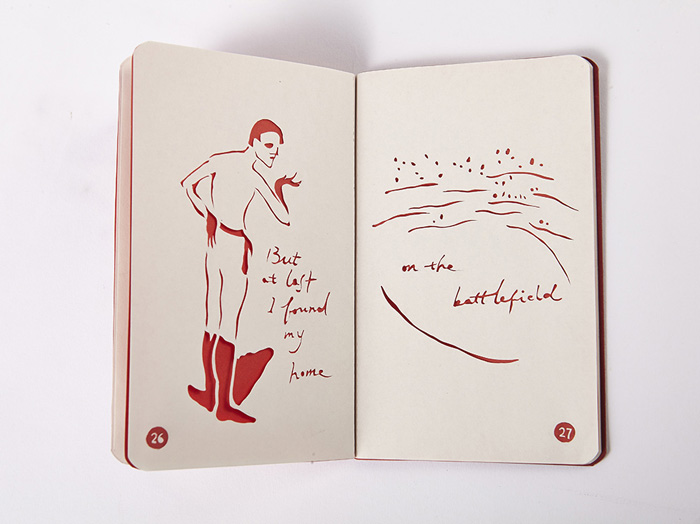 But
at last
I found
my
home
26
on the
battlefield
27